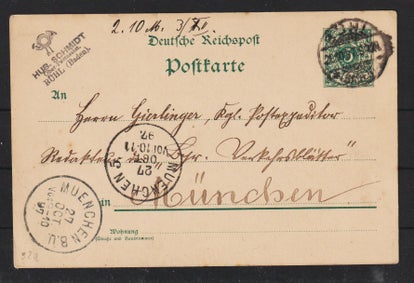 2. 10 M.
HUB. SCHMIDT
BÜHL (Baden).
Deutsche Reichspost
Postkarte
5
An
Herrn Gierlinger, Kgl. Postexpeditor
Redakteur der Verkehrsblätter
MUENCHEN 5
27
OCT
VOR.10-11
97
München
in
MUENCHEN B.V.
27
OCT
97
Wohnung
(Straße und Hausnummer)